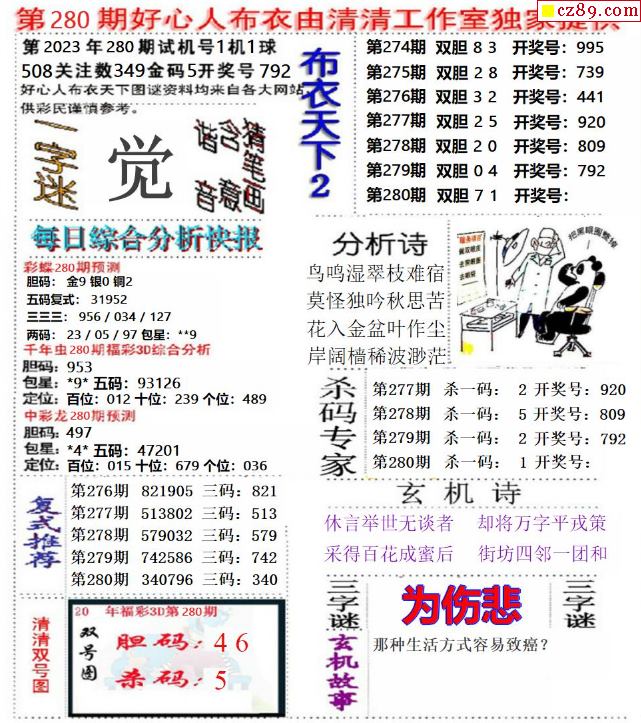 第280期好心人布衣由清清工作室独家提供
cz89.com
第2023年280期试机号1机1球
508关注数349金码5开奖号792
好心人布衣天下图谜资料均来自各大网站
供彩民谨慎参考。
一字迷
觉
猜笔画
含意义
谐音
每日综合分析快报
彩蝶280期预测
胆码： 金9 银0 铜2
五码复式： 31952
三三三： 956 / 034 / 127
两码： 23 / 05 / 97 包星： **9
千年虫280期福彩3D综合分析
胆码：953
包星：*9* 五码：93126
定位：百位：012 十位：239 个位：489
中彩龙280期预测
胆码：497
包星：*4* 五码：47201
定位：百位：015 十位：679 个位：036
复式推荐
第276期 821905 三码：821
第277期 513802 三码：513
第278期 579032 三码：579
第279期 742586 三码：742
第280期 340796 三码：340
清清双号图
20 年福彩3D第280期
双号图
胆码：46
杀码：5
布衣天下2
第274期 双胆 8 3 开奖号：995
第275期 双胆 2 8 开奖号：739
第276期 双胆 3 2 开奖号：441
第277期 双胆 2 5 开奖号：920
第278期 双胆 2 0 开奖号：809
第279期 双胆 0 4 开奖号：792
第280期 双胆 7 1 开奖号：
分析诗
鸟鸣湿翠枝难宿
莫怪独吟秋思苦
花入金盆叶作尘
岸阔樯稀波渺茫
把黑眼圈整掉
杀码专家
第277期 杀一码： 2 开奖号：920
第278期 杀一码： 5 开奖号：809
第279期 杀一码： 2 开奖号：792
第280期 杀一码： 1 开奖号：
玄机诗
休言举世无谈者 却将万字平戎策
采得百花成蜜后 街坊四邻一团和
三字谜
为伤悲
三字谜
玄机故事
那种生活方式容易致癌？